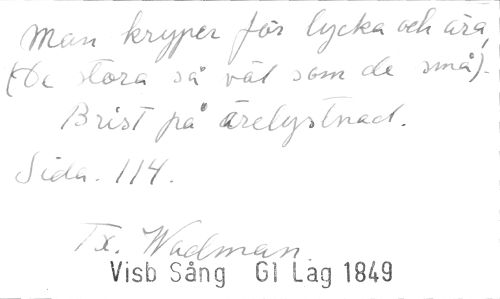 Man kryper för lycka och ära,
(De stora så väl som de små).
Brist på ärelystnad.
Sida. 114.
Tx. Wadman.
Visb Sång Gl Lag 1849